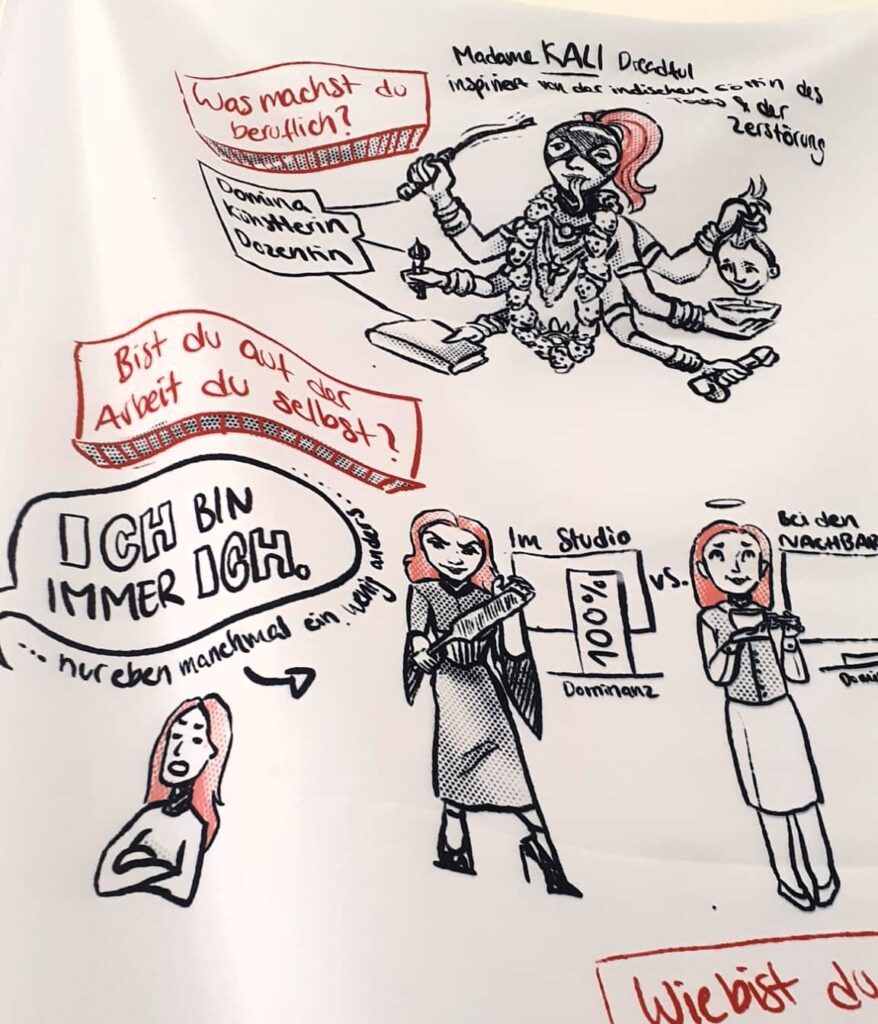 Madame KALI Dreadful
inspiriert von der indischen Göttin des
Todes & der
Zerstörung
Was machst du
beruflich?
Domina
Künstlerin
Dozentin
Bist du auf der
Arbeit du selbst?
ICH BIN
IMMER ICH.
... nur eben manchmal ein wenig anders...
Im Studio
100%
Dominanz
vs.
Bei den
NACHBAR
Domi
Wie bist du